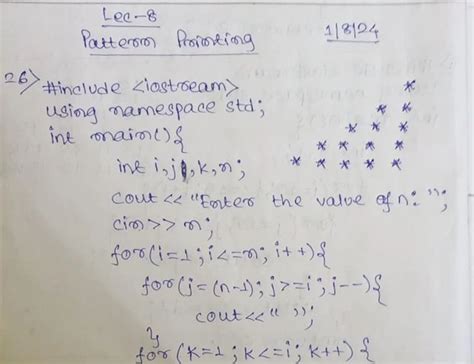 Lec-8
Pattern Printing 1/8/24
26> #include <iostream>
using namespace std;
int main(){
int i,j,k,n;
cout<<"Enter the value of n:";
cin>>n;
for(i=1;i<=n;i++){
for(j=(n-1);j>=i;j--){
cout<<" ";
}
for(k=1;k<=i;k++){
*
* *
* * *
* * * *
* * * * *